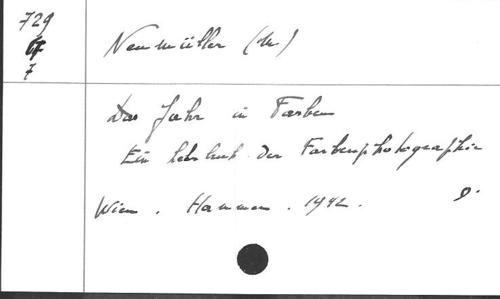 729
7
Neumüller (M)
Das Jahr in Farben
Ein Lehrbuch der Farbenphotographie
Wien. Hammer. 1942.